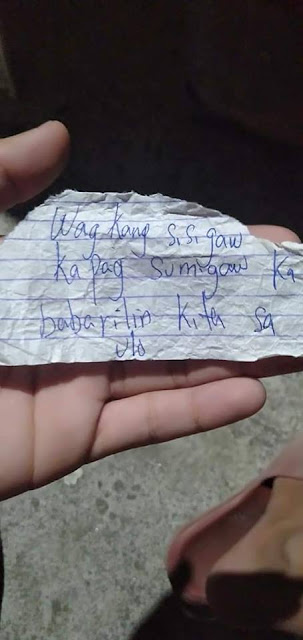 Wag kang sisigaw
kapag sumigaw ka
babarilin kita sa
ulo